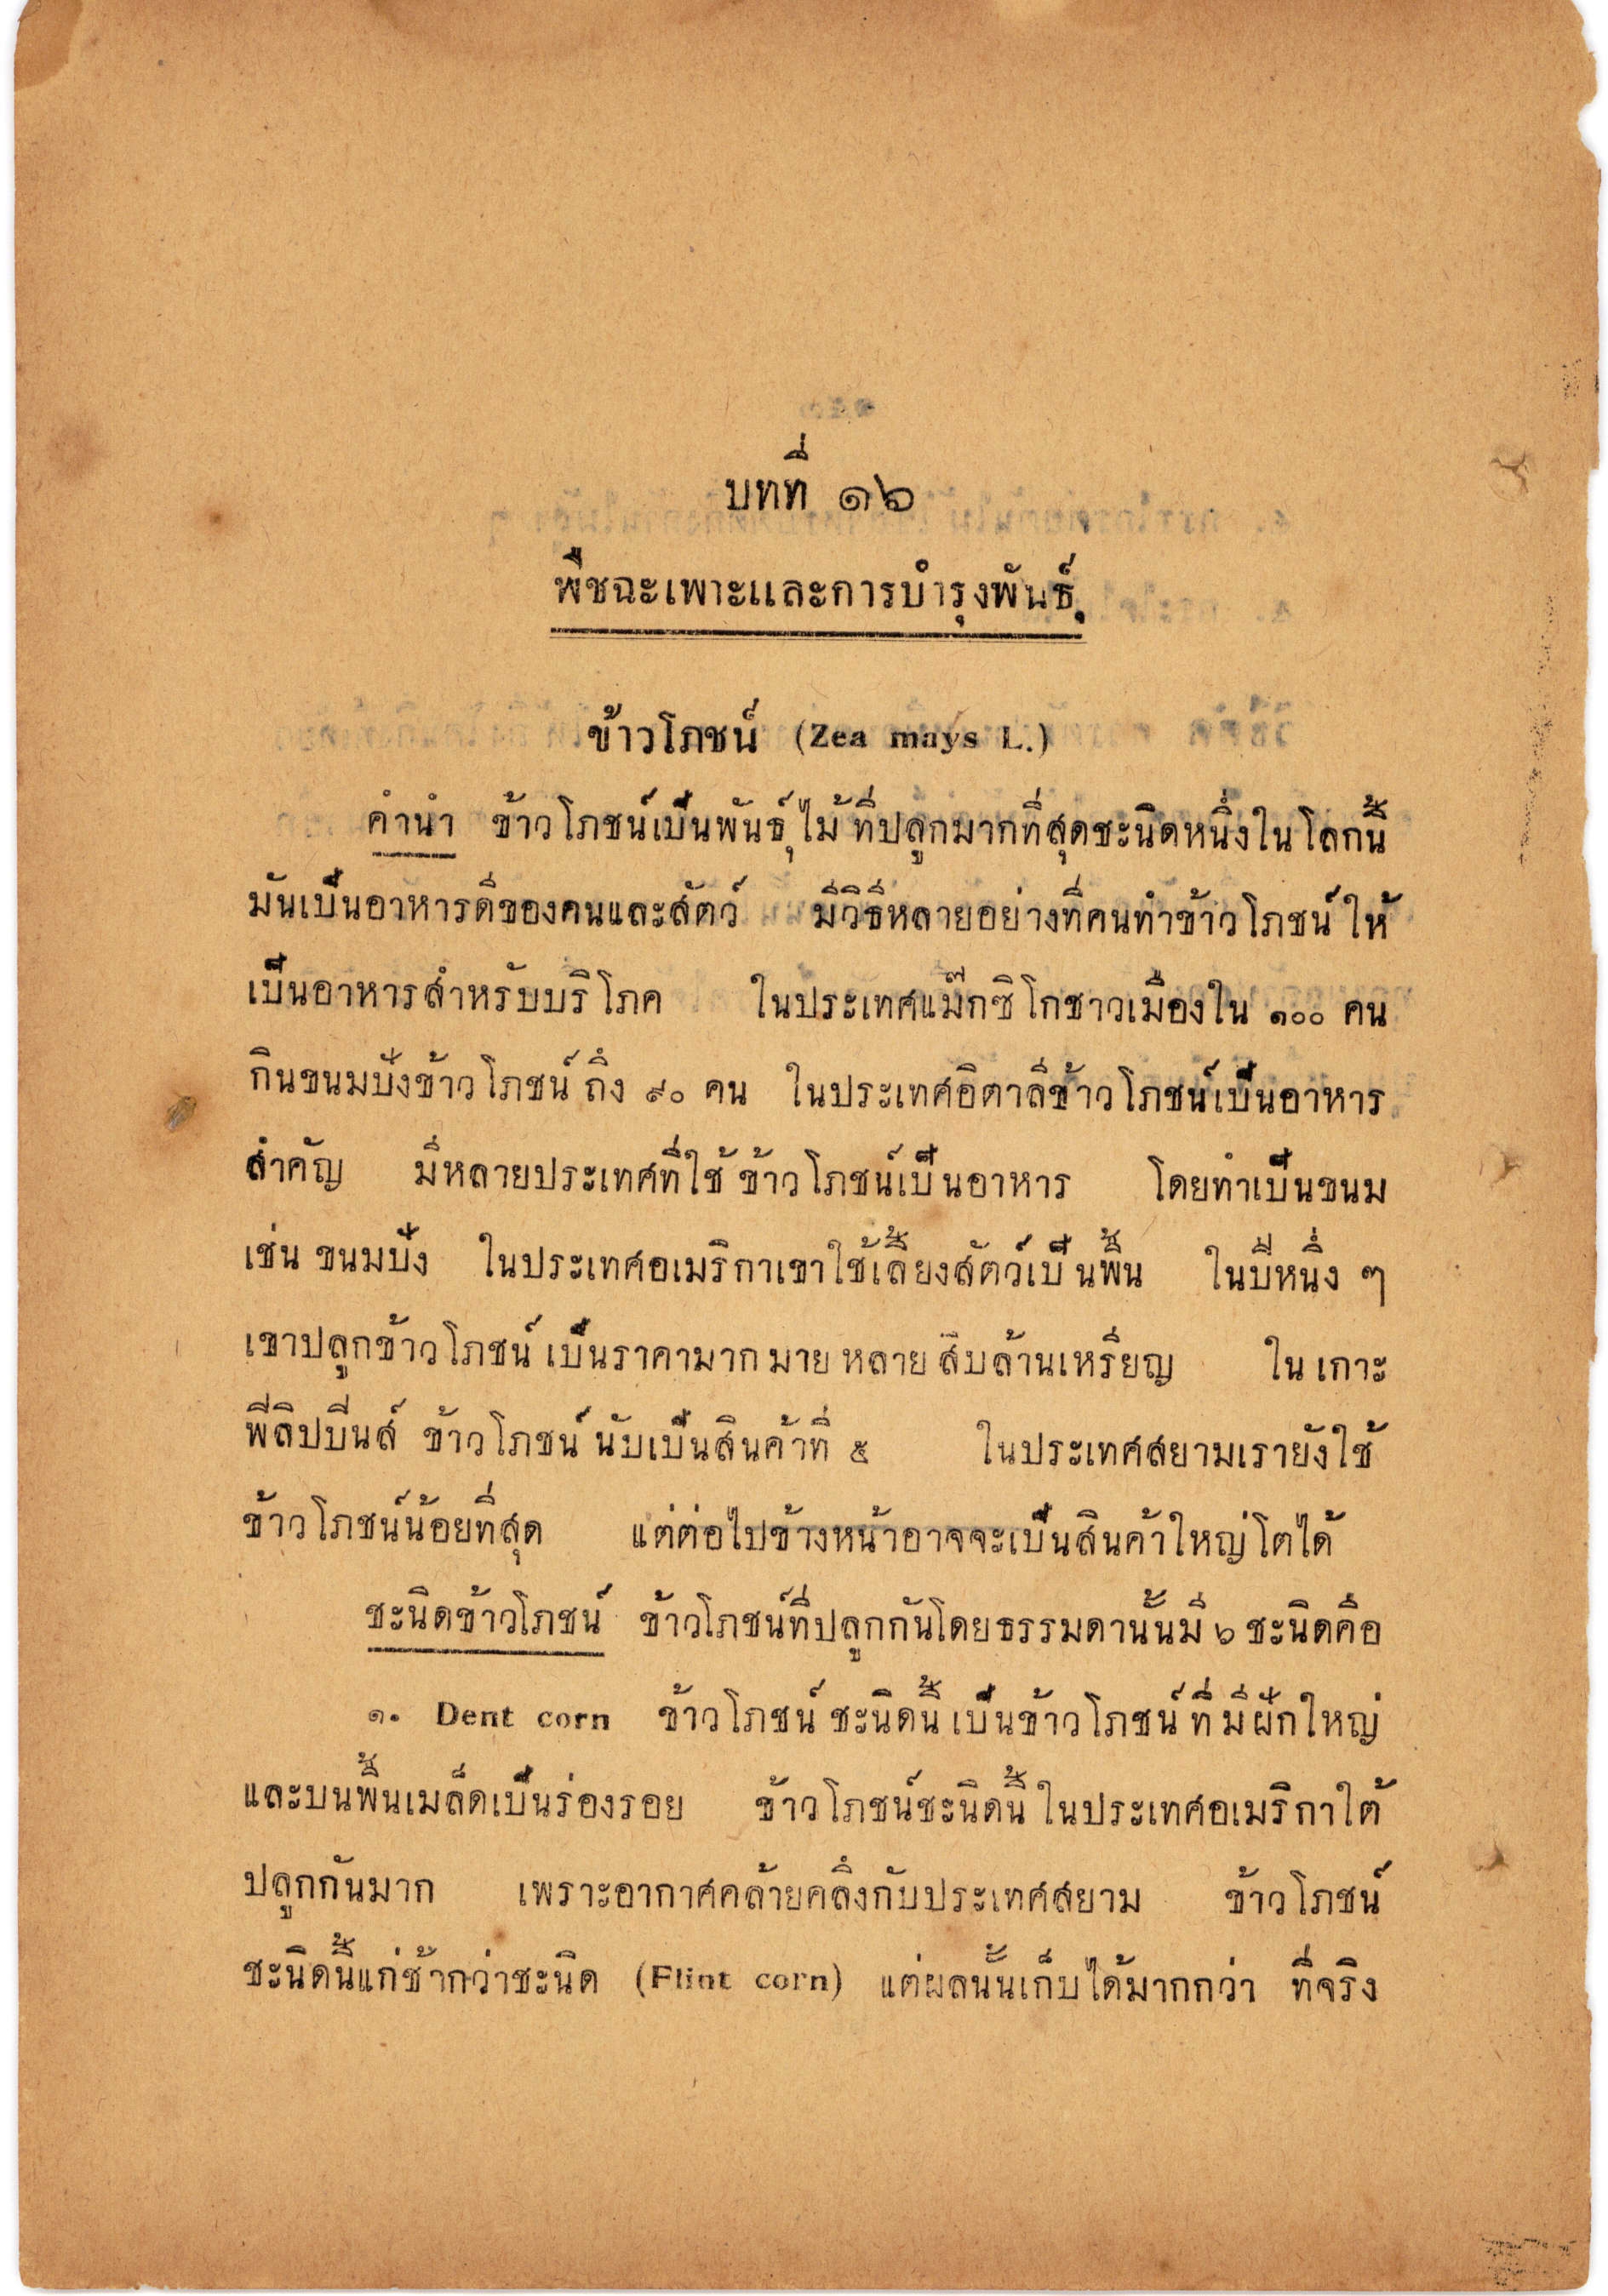 บทที่ ๑๖
พืชฉะเพาะและการบำรุงพันธุ์
ข้าวโภชน์ (Zea mays L.)
คำนำ ข้าวโภชน์เป็นพันธุ์ไม้ที่ปลูกมากที่สุดชะนิดหนึ่งในโลกนี้
มันเป็นอาหารดีของคนและสัตว์ มีวิธีหลายอย่างที่คนทำข้าวโภชน์ให้
เป็นอาหารสำหรับบริโภค ในประเทศแม๊กซิโกชาวเมืองใน ๑๐๐ คน
กินขนมปังข้าวโภชน์ถึง ๙๐ คน ในประเทศอิตาลีข้าวโภชน์เป็นอาหาร
สำคัญ มีหลายประเทศที่ใช้ข้าวโภชน์เป็นอาหาร โดยทำเป็นขนม
เช่น ขนมปัง ในประเทศอเมริกาเขาใช้เลี้ยงสัตว์เป็นพื้น ในปีหนึ่ง ๆ
เขาปลูกข้าวโภชน์เป็นราคามากมายหลายสิบล้านเหรียญ ในเกาะ
พีลิปปีนส์ ข้าวโภชน์นับเป็นสินค้าที่ ๕ ในประเทศสยามเรายังใช้
ข้าวโภชน์น้อยที่สุด แต่ต่อไปข้างหน้าอาจจะเป็นสินค้าใหญ่โตได้
ชะนิดข้าวโภชน์ ข้าวโภชน์ที่ปลูกกันโดยธรรมดานั้นมี ๖ ชะนิดคือ
๑. Dent corn ข้าวโภชน์ชะนิดนี้เป็นข้าวโภชน์ที่มีฝักใหญ่
และบนพื้นเมล็ดเป็นร่องรอย ข้าวโภชน์ชะนิดนี้ในประเทศอเมริกาใต้
ปลูกกันมาก เพราะอากาศคล้ายคลึงกับประเทศสยาม ข้าวโภชน์
ชะนิดนี้แก่ช้ากว่าชะนิด (Flint corn) แต่ผลนั้นเก็บได้มากกว่า ที่จริง